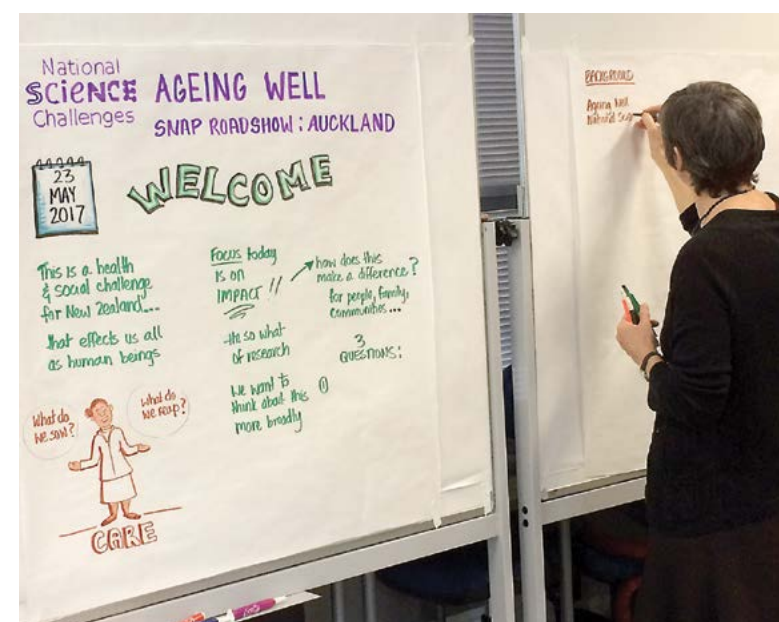 National
SCIENCE
Challenges
AGEING WELL
SNAP ROADSHOW : AUCKLAND
23
MAY
2017
WELCOME
This is a health
& social challenge
for New Zealand...
that effects us all
as human beings
Focus today
is on
IMPACT !!
-the so what
of research
We want to
think about this
more broadly
how does this
make a difference?
for people, family,
communities...
3
QUESTIONS:
①
What do
we sow?
What do
we reap?
CARE
BACKGROUND
Ageing Well
National Scie